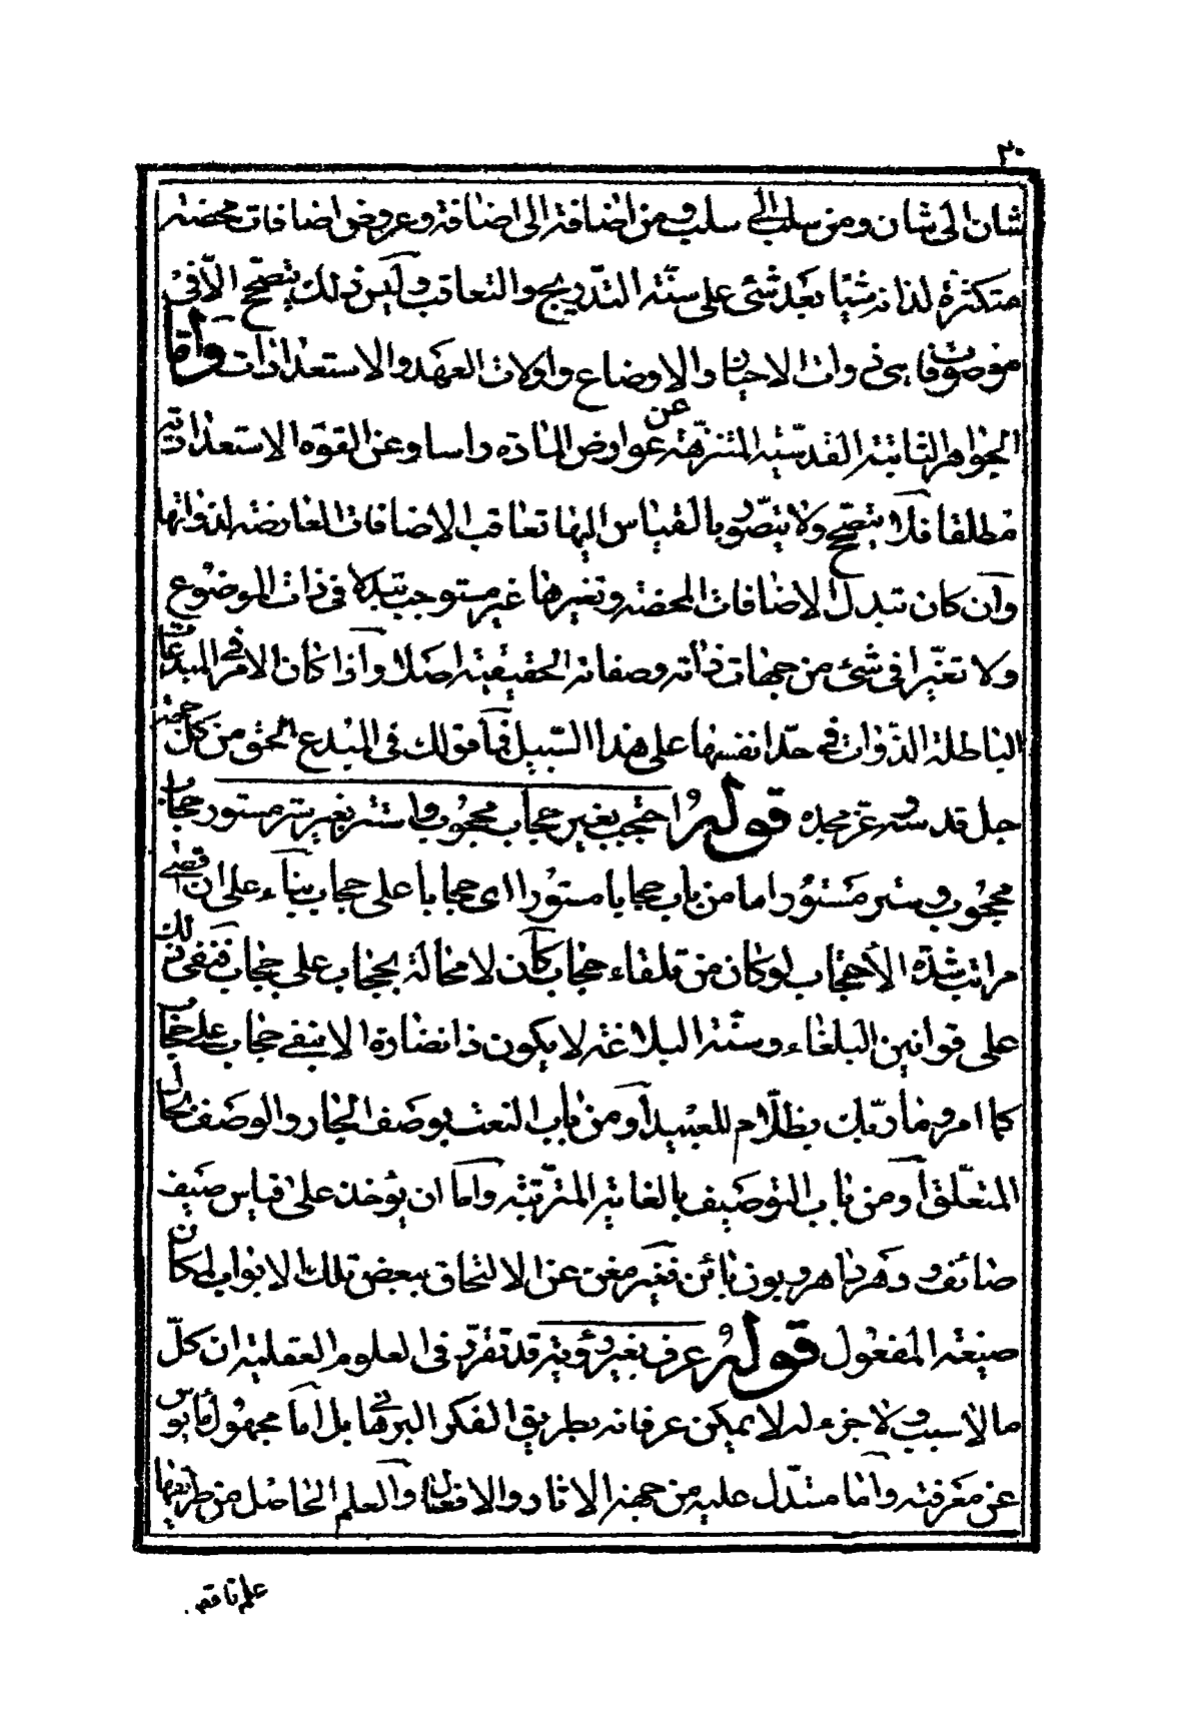 ٣٠
شان الى شان ومن سلب الى سلب ومن اضافة الى اضافة وعروض اضافات محضة
متكثرة لذاته شيئا بعد شئ على سنّة التدريج والتعاقب وليس ذلك يتصحّح الّا فى
موصوفا بى ذوات الاحيان والاوضاع واولات العهد والاستعدادات وامّا
الجواهر الثابتة القدسّية المتنزهة عن عوارض المادة راسا وعن القوة الاستعدادية
مطلقا فلا يتصحّح ولا يتصّور بالقياس اليها تعاقب الاضافات العارضة لذواتها
وان كان تبدل الاضافات المحضة وتغيرها غير مستوجب تبدلا فى ذات الموضوع
ولا تغيّرا فى شئ من جهات ذاته وصفاته الحقيقية اصلا واذا كان الامر فى المبدعات
الباطلة الذّوات فى حدّ انفسها على هذا السّبيل فما قولك فى المبدع الحق من كل جهة
جل قدسه عزّ مجده قوله احتجب بغير حجاب محجوب واستتر بغير ستر مستور حجاب
محجوب وستر مستور اما من باب حجابا مستورا اى حجابا على حجاب بناء على ان اقصى
مراتب شدّة الاحتجاب لو كان من تلقاء حجاب كان لا محالة بحجاب على حجاب فنفى ذلك
على قوانين البلغاء وسنّة البلاغة لا يكون ذا نضارة الا بنفى حجاب على حجاب
كما امر وما ربّك بظلّام للعبيد او من باب النعت بوصف الجار والوصف بحال
المتعلّق او من باب التوصيف بالغاية المترتبة واما ان يؤخذ على قياس صيف
صائف ودهر داهر وبون بائن فغير مغن عن الالتحاق ببعض تلك الابواب لمكان
صيغة المفعول قوله عرف بغير رؤية قد تقرّر فى العلوم العقلية ان كلّ
ما لا سبب ولا جزء له لا يمكن عرفانه بطريق الفكر البرهانى بل امّا مجهول مايوس
عن معرفته وامّا مستدّل عليه من جهة الاثار والافعال والعلم الحاصل من طريقها
علم ناقص